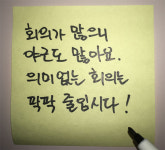 회의가 많으니
야근도 많아요.
의미없는 회의는
팍팍 줄입시다!